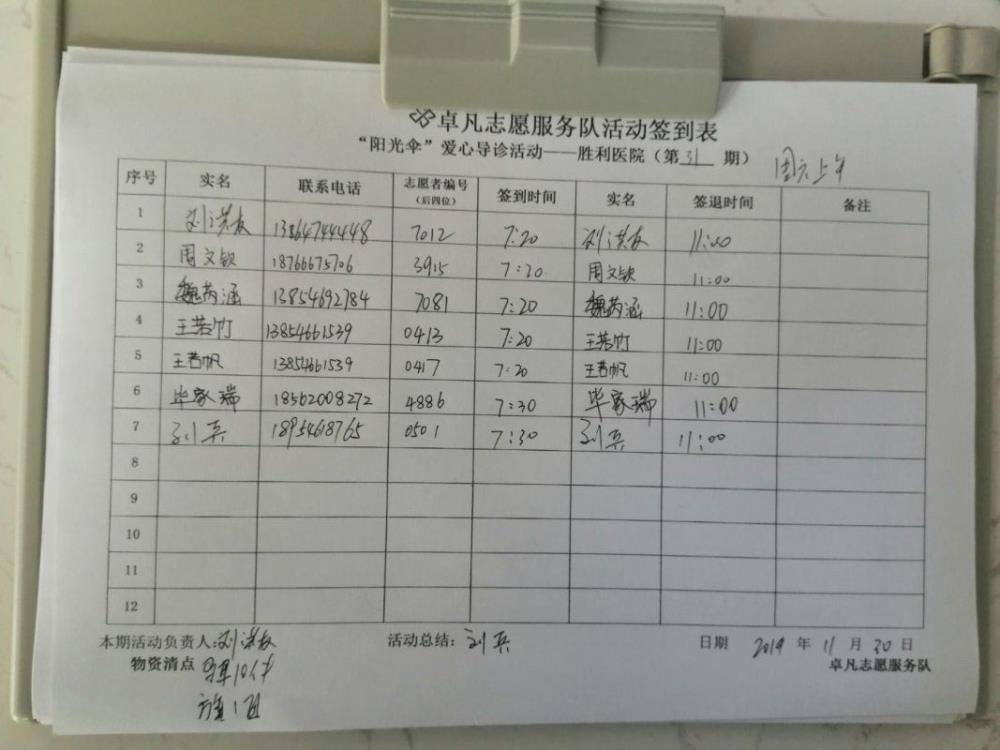 卓凡志愿服务队活动签到表
“阳光伞”爱心导诊活动——胜利医院（第 31 期） 周六上午
序号 实名 联系电话 志愿者编号（后四位） 签到时间 实名 签退时间 备注
1 刘洪友 13864744448 7012 7:20 刘洪友 11:00
2 周文钦 18766675706 3915 7:20 周文钦 11:00
3 魏芮涵 13854692784 7081 7:20 魏芮涵 11:00
4 王若竹 13854661539 0413 7:20 王若竹 11:00
5 王若帆 13854661539 0417 7:20 王若帆 11:00
6 毕家瑞 18562008272 4886 7:30 毕家瑞 11:00
7 刘兵 18954618765 0501 7:30 刘兵 11:00
8
9
10
11
12
本期活动负责人:刘洪友 活动总结: 刘兵 日期 2019 年 11 月 30 日
物资清点 10件 卓凡志愿服务队
1面